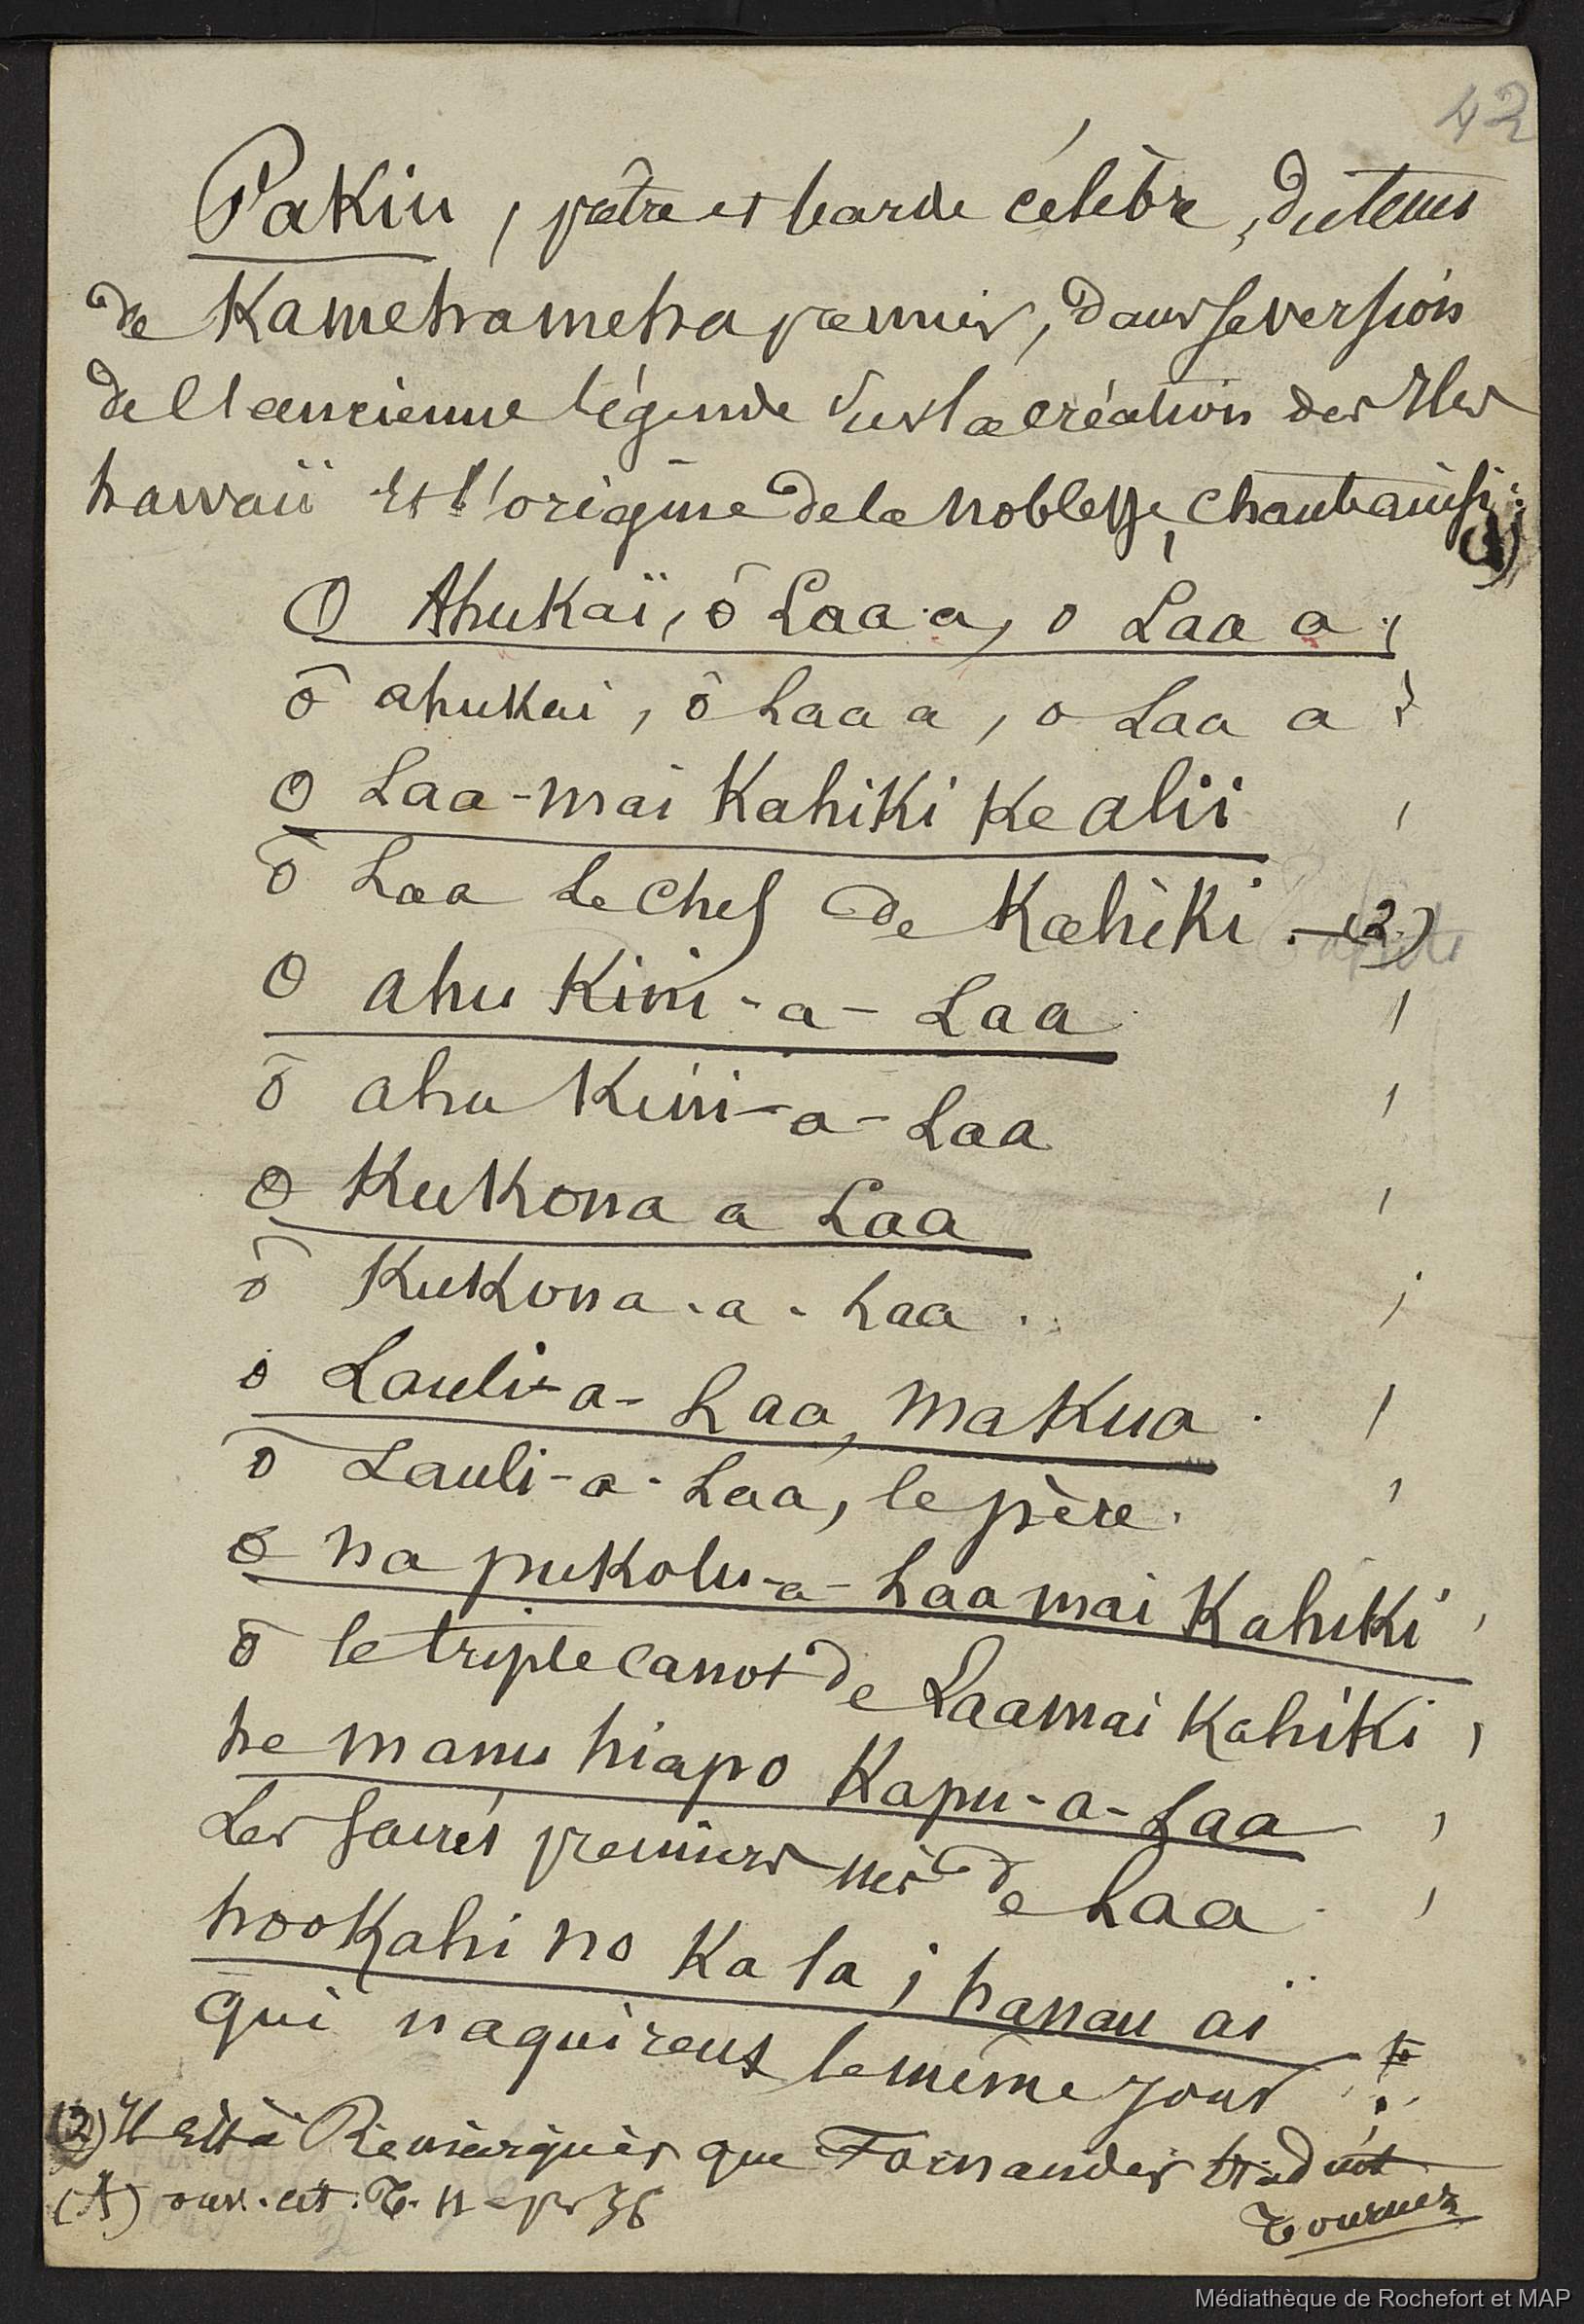 42
Pakiu, prêtre et barde célèbre, du tems
de Kamehameha premier, dans sa version
de l'ancienne légende sur la création des Iles
hawaii et l'origine de la noblesse, chante ainsi :
(1)
O Ahukaï, ô Laa-a, o Laa a,
ō ahukai, ô Laa a, o Laa a
O Laa-mai Kahiki Ke alii
ō Laa le chef de Kahiki. (2)
O ahu Kini-a-Laa
ō ahu Kini-a-Laa
O KuKona a Laa
ō KuKona-a-Laa.
o Lauli-a-Laa, maKua.
ō Lauli-a-Laa, le père.
o na puKolu-a-Laa mai Kahiki
ō le triple canot de Laamai Kahiki
he manu hiapo Kapu-a-Laa
Les sacrés premiers nés de Laa.
hooKahi no Ka la i hanau ai
qui naquirent le même jour
(2) Il est à Remarquer que Fornander traduit
(1) ouv. cit. T. II - p. 36
Tournez
Médiathèque de Rochefort et MAP